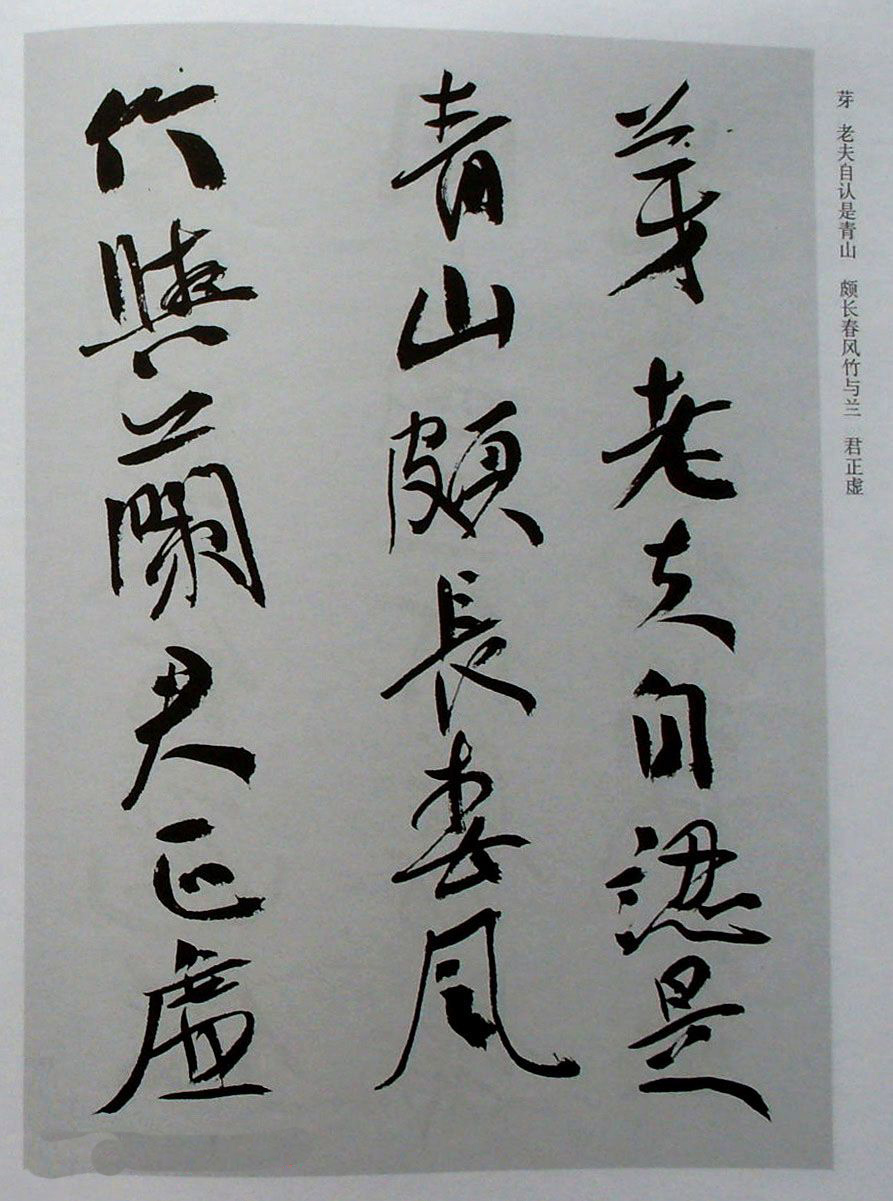 芽 老夫自认是青山 颇长春风竹与兰 君正虚
芽老夫自認是
青山頗長春風
竹與蘭君正虛